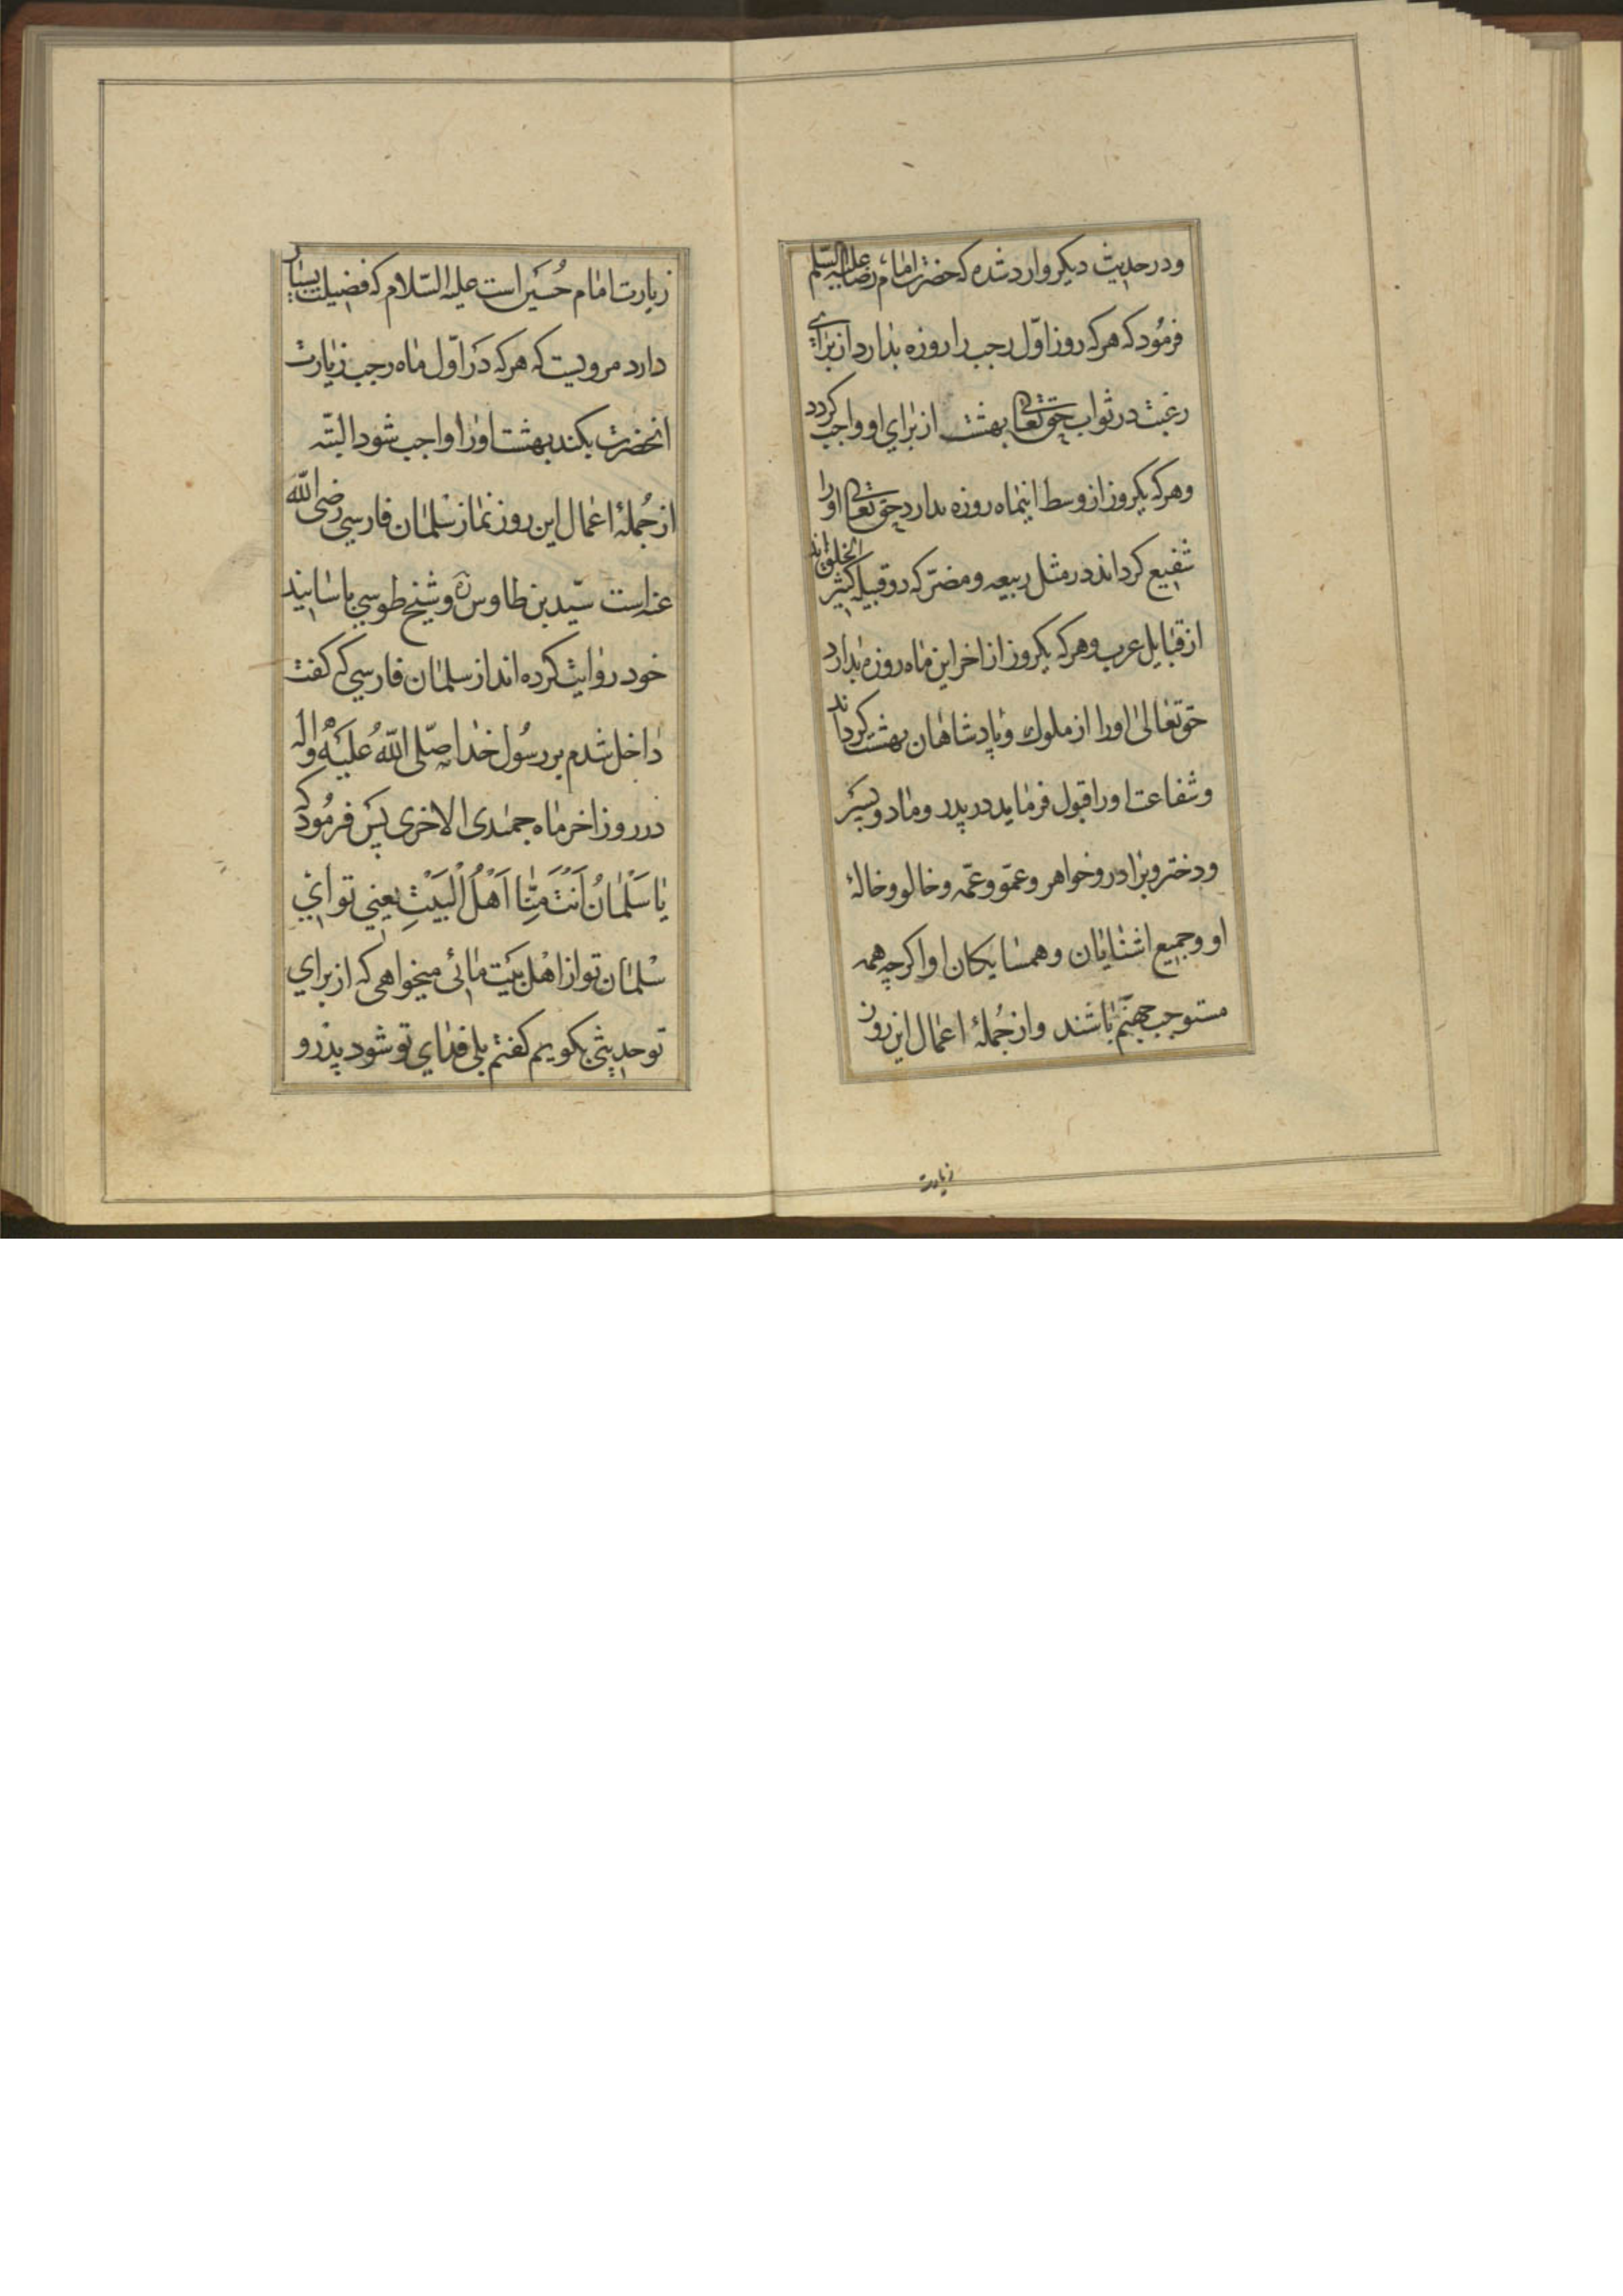 ودر حدیث دیکر وارد شده که حضرت امام رضا علیه السلم
فرمود که هر که روز اوّل رجب را روزه بدارد از برای
رغبت در ثواب حق تعالی بهشت از برای او واجب کردد
وهر که یکروز از وسط اینماه روزه بدارد حق تعالی او را
شفیع کرداند در مثل ربیعه ومضرّ که دو قبیله کثیر الخلق اند
از قبایل عرب وهر که یکروز از اخر این ماه روزه بدارد
حق تعالی او را از ملوك و پادشاهان بهشت کرداند
وشفاعت او را قبول فرماید در پدر ومادر وپسر
ودختر وبرادر وخواهر وعمّو وعمّه وخالو وخالهٔ
او وجمیع اشنایان وهمسایکان او اکرچه همه
مستوجب جهنّم باشند واز جُملهٔ اعمال این روز
زیارت
زیارت امام حُسَین است علیه السّلام که فضیلت بسیار
دارد مرویست که هر که در اوّل ماه رجب زیارت
انحضرت بکند بهشت او را واجب شود البتّه
از جُملهٔ اعمال این روز نماز سلمان فارسي رضی الله
عنه است سیّد بن طاوس ره وشیخ طوسي باسانید
خود روایت کرده اند از سلمان فارسي که کفت
داخل شدم بر رسُول خدا صلّی اللهُ علیه واله
در روز اخر ماه جمٰدی الاخری پس فرمُود که
یا سَلْمانُ اَنْتَ مِنّا اَهْلُ الْبَیْتِ یعني تو اي
سلمان تو از اهل بیت مائی میخواهی که از براي
تو حدیثي بکویم کفتم بلی فداي تو شود پدر و